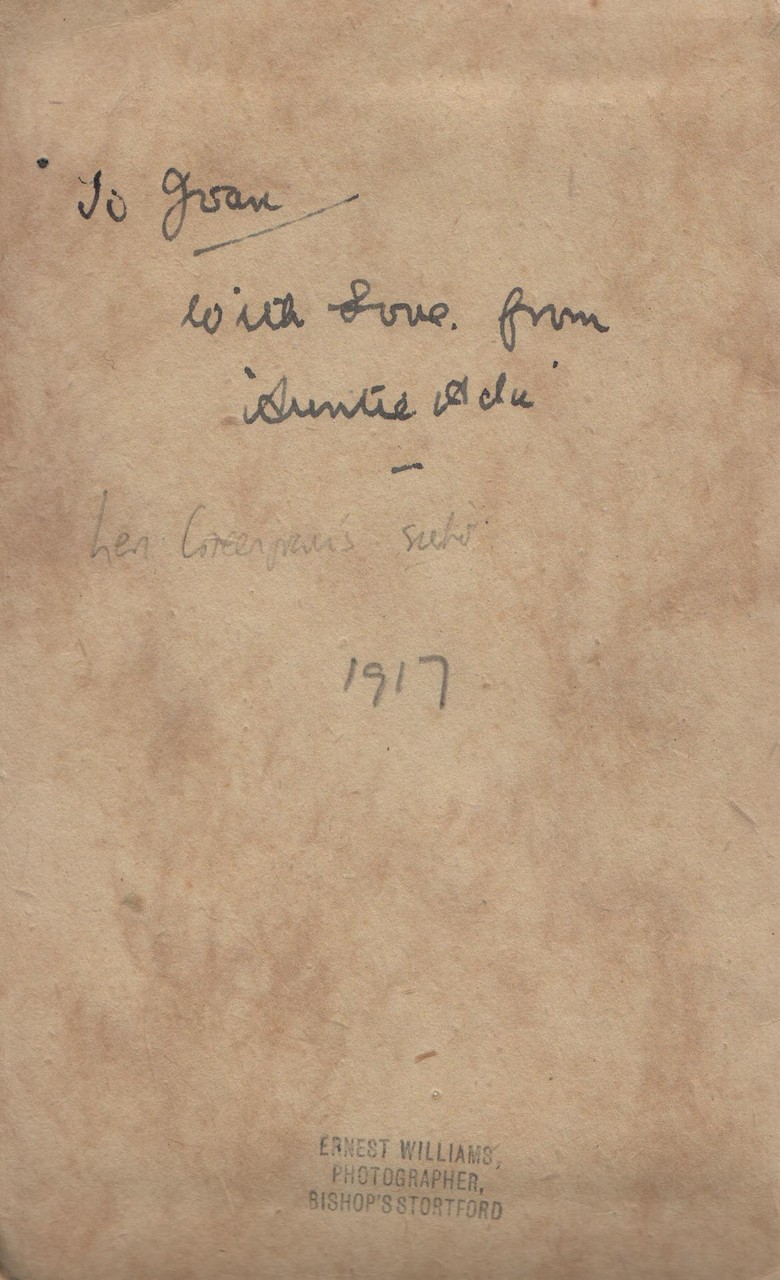 To Joan
With Love. from
'Auntie Ada'
Len
1917
ERNEST WILLIAMS,
PHOTOGRAPHER,
BISHOP'S STORTFORD